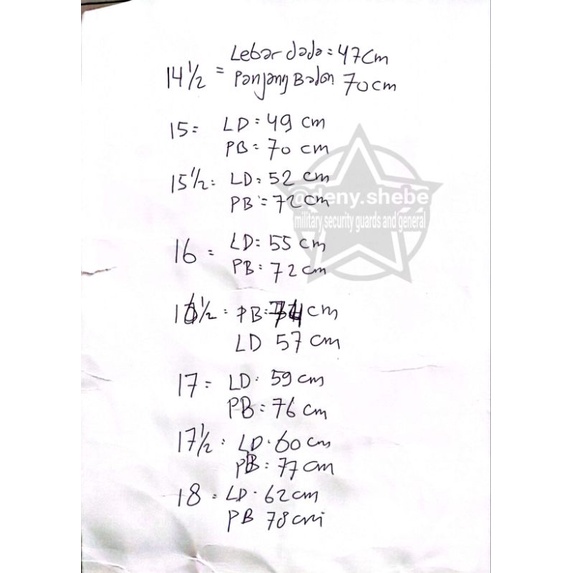 Lebar dada = 47 Cm
14 1/2 = Panjang Badan 70 cm
15 = LD = 49 cm
PB = 70 cm
15 1/2 = LD = 52 cm
PB = 72 cm
@deny.shebe
military security guards and general
16 = LD = 55 cm
PB = 72 cm
16 1/2 = PB = 74 cm
LD 57 cm
17 = LD = 59 cm
PB = 76 cm
17 1/2 = LD = 60 cm
PB = 77 cm
18 = LD = 62 cm
PB 78 cm